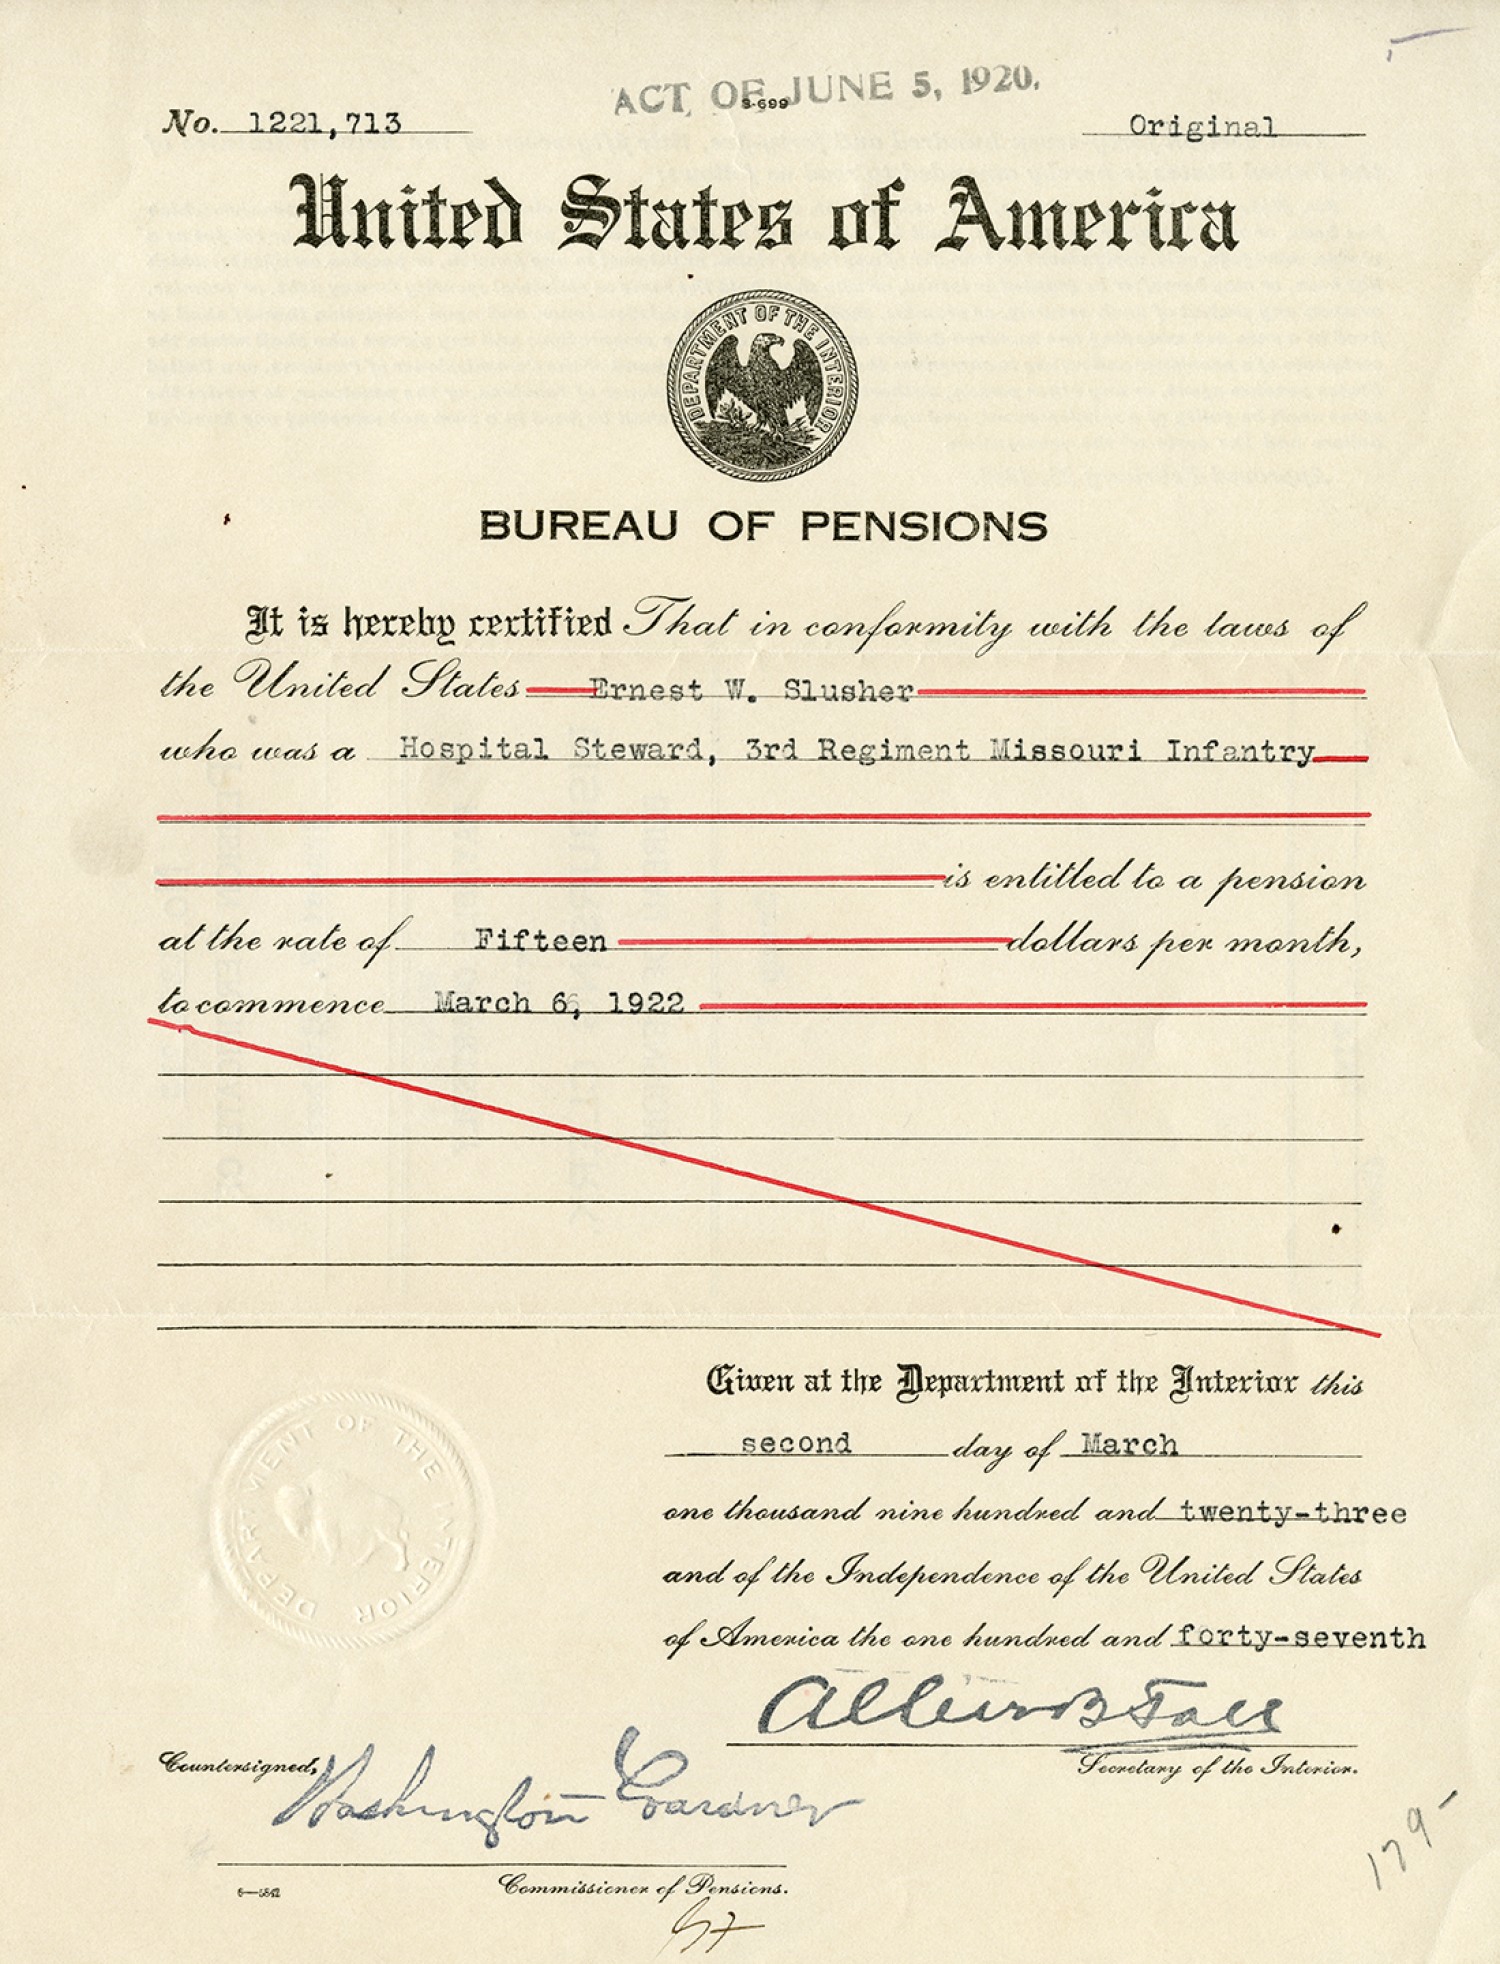 ACT OF JUNE 5, 1920.
3-699
No. 1221,713
Original
United States of America
DEPARTMENT OF THE INTERIOR
BUREAU OF PENSIONS
It is hereby certified That in conformity with the laws of
the United States Ernest W. Slusher
who was a Hospital Steward, 3rd Regiment Missouri Infantry
is entitled to a pension
at the rate of Fifteen dollars per month,
to commence March 6, 1922
Given at the Department of the Interior this
second day of March
one thousand nine hundred and twenty-three
and of the Independence of the United States
of America the one hundred and forty-seventh
DEPARTMENT OF THE INTERIOR
Albert B Fall
Secretary of the Interior.
Countersigned,
Washington Gardner
179
6-5542
Commissioner of Pensions.